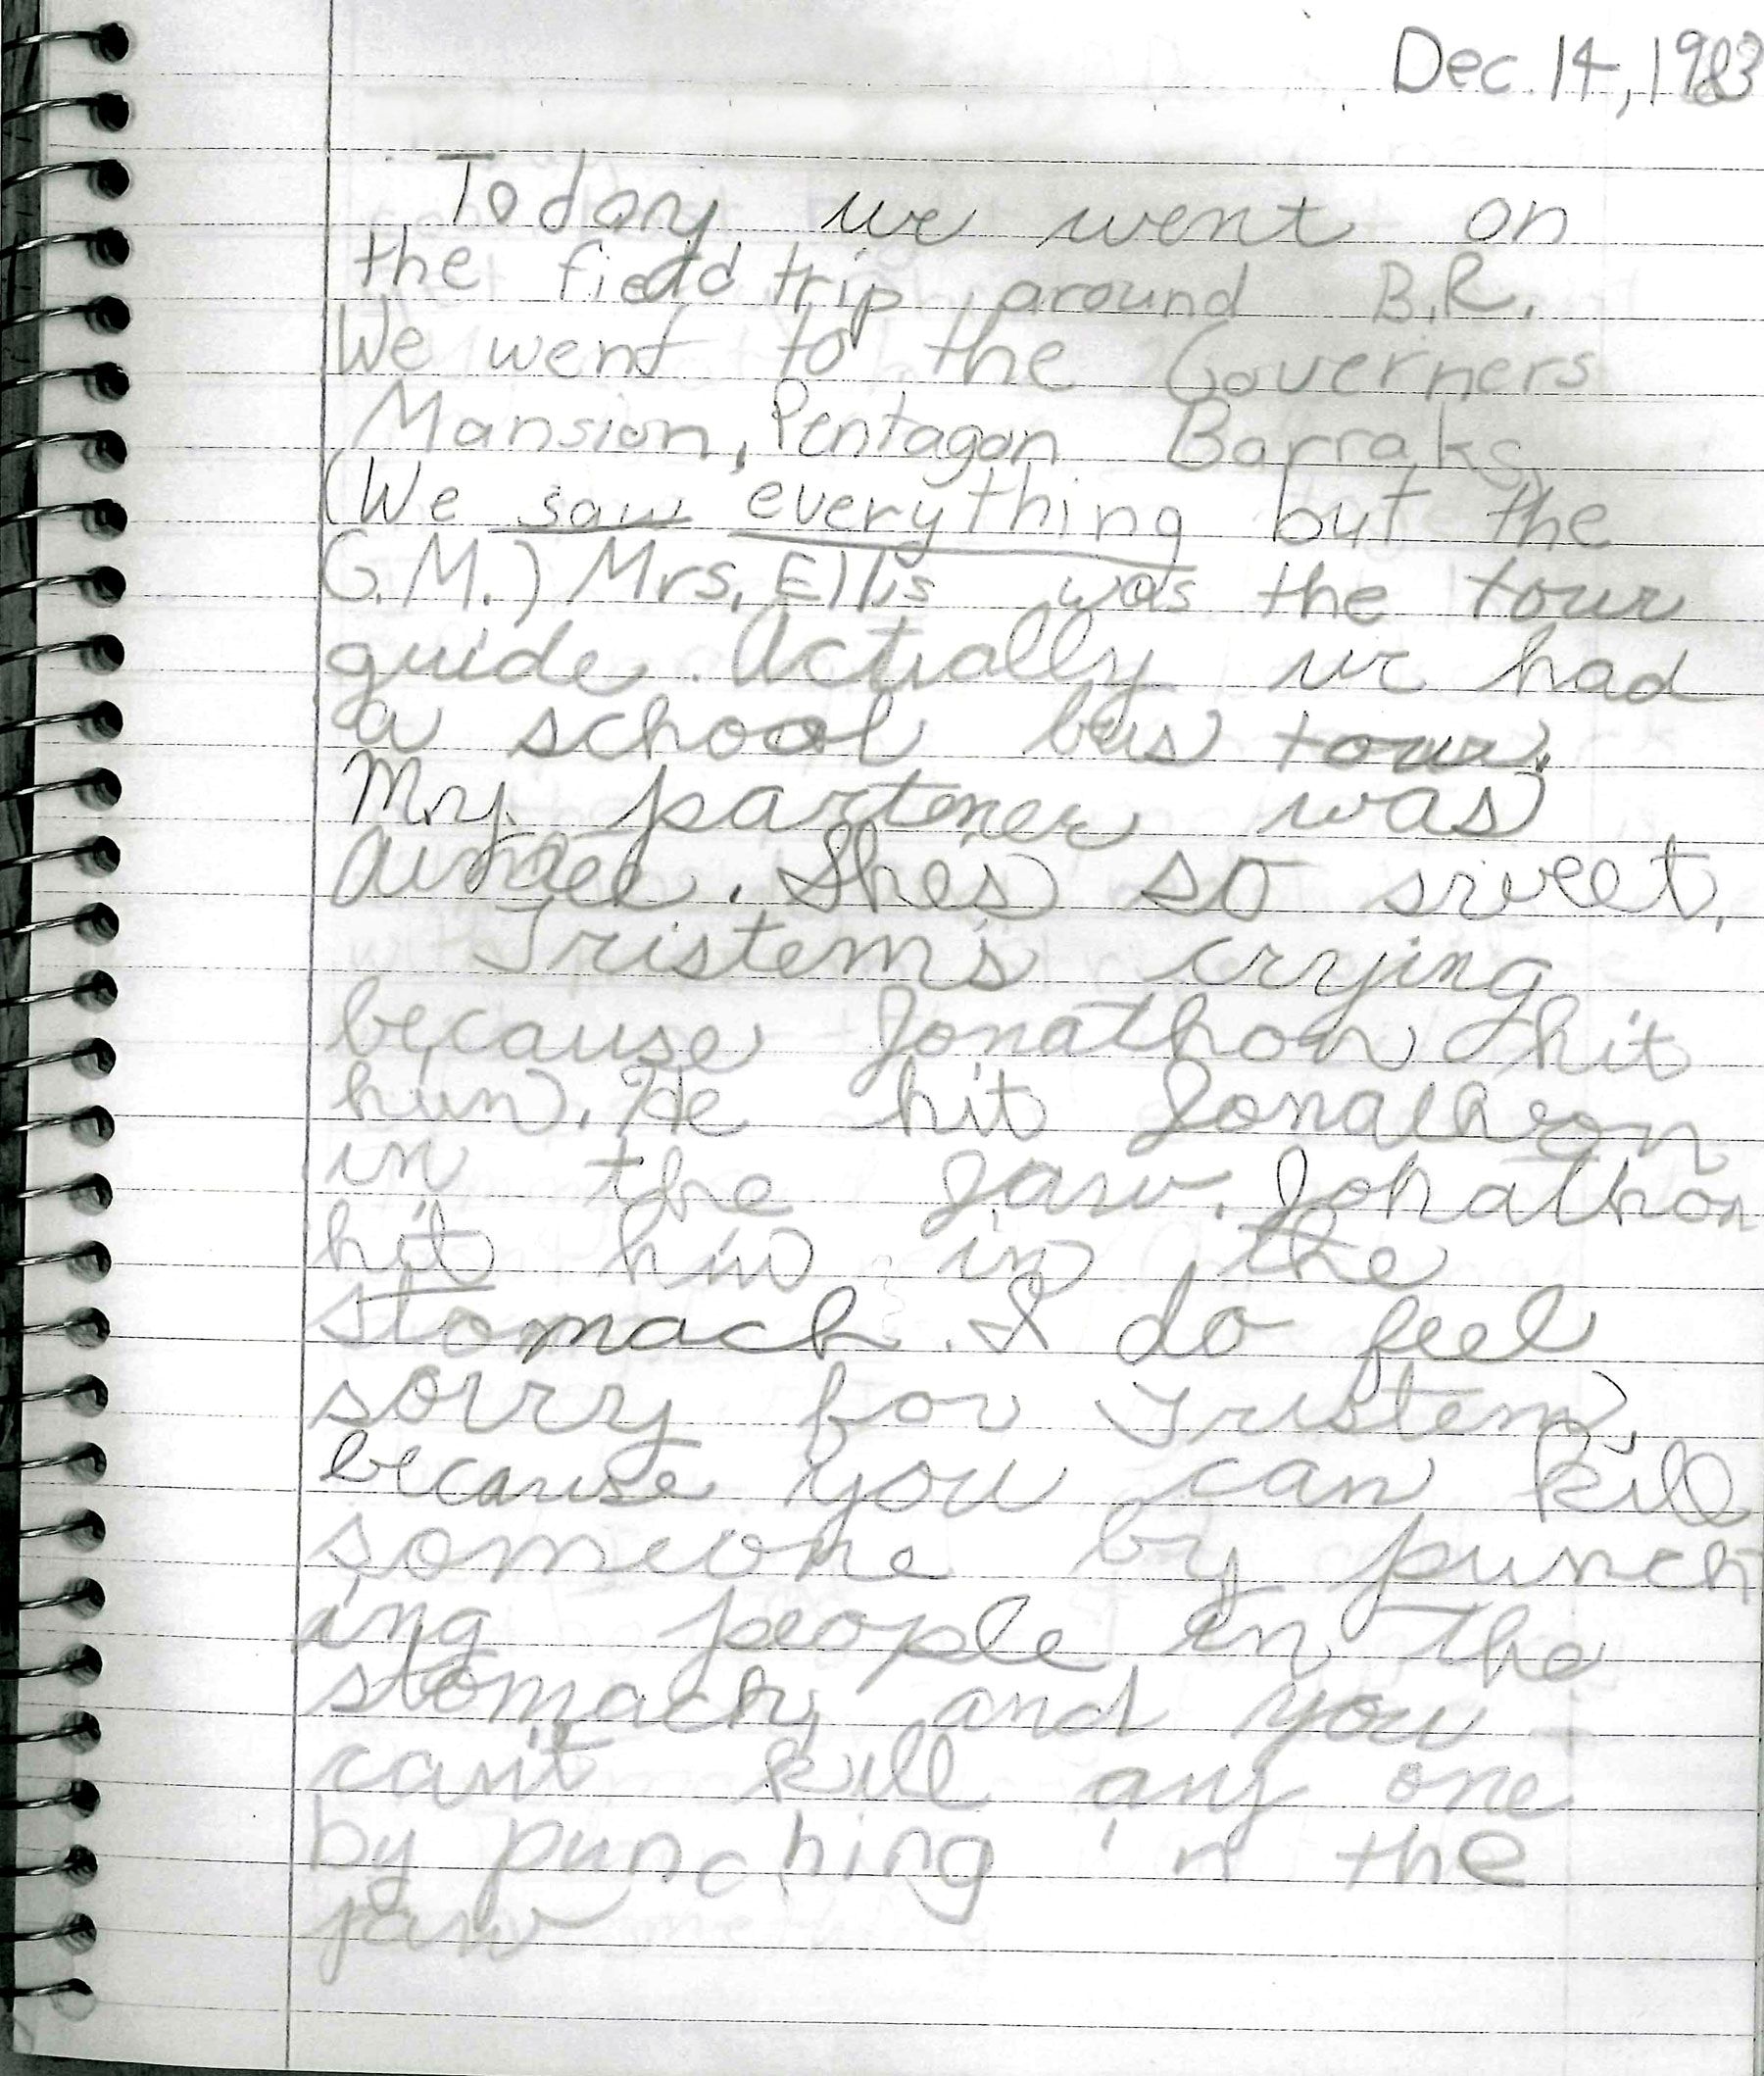 Dec. 14, 1983
Today we went on
the field trip around B.R.
We went to the Governers
Mansion, Pentagon Barraks,
(We saw everything but the
G.M.) Mrs. Ellis was the tour
guide. Actually we had
a school bus tour.
My partener was
Aimee. Shes so sweet.
Tristem's crying
because Jonathon hit
him. He hit Jonathon
in the jaw. Jonathon
hit him in the
stomach. I do feel
sorry for Tristem,
because you can kill
someone by punch
ing people in the
stomach, and you
can't kill any one
by punching in the
jaw